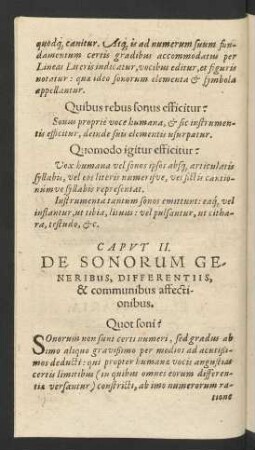 quodq́, canitur. Atq́, is ad numerum suum fun-
damentum certis gradibus accommodatus per
Lineas Literis indicatur, vocibus editur, et figuris
notatur: qua ideo sonorum elementa & symbola
appellantur.
Quibus rebus sonus efficitur?
Sonus propriè voce humana, & sic instrumen-
tis efficitur, deinde suis elementis usurpatur.
Quomodo igitur efficitur?
Vox humana vel sonos ipsos absq, articulatis
syllabis, vel eos literis numerisve, vel fictis cantio-
num ve syllabis repræsentat.
Instrumenta tantum sonos emittunt: eaq́, vel
inflantur, ut tibia, lituus: vel pulsantur, ut citha-
ra, testudo, &c.
CAPVT II.
DE SONORUM GE-
NERIBUS, DIFFERENTIIS,
& communibus affecti-
onibus.
Quot soni?
SOnorum non sunt certi numeri, sed gradus ab
imo aliquo gravißimo per medios ad acutißi-
mos deducti: qui propter humanæ vocis angustias
certis limitibus (in quibus omnes eorum differen-
tiæ versantur) constricti, ab imo numerorum ra-
tione